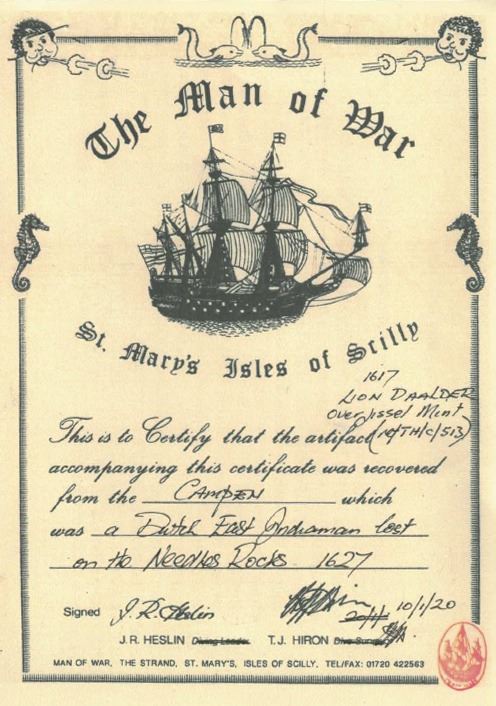 The Man of War
St. Mary's Isles of Scilly
1617
LION DAALDER
Overijssel Mint
This is to Certify that the artifact (10/TH/C/513)
accompanying this certificate was recovered
from the CAMPEN which
was a Dutch East Indiaman lost
on the Needles Rocks 1627
Signed J.R. Heslin 10/1/20
J.R. HESLIN Diving Leader T.J. HIRON
MAN OF WAR, THE STRAND, ST. MARY'S, ISLES OF SCILLY. TEL/FAX: 01720 422563